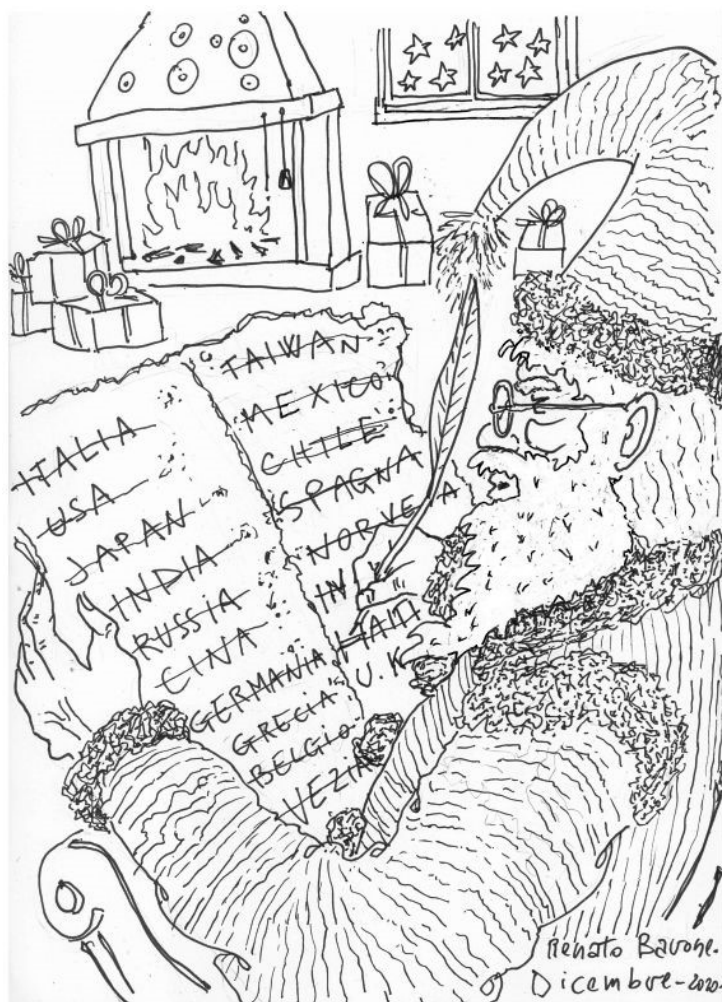 ITALIA
USA
JAPAN
INDIA
RUSSIA
CINA
GERMANIA
GRECIA
BELGIO
TAIWAN
MEXICO
CHILE
SPAGNA
HAITI
U.K
Renato Barone.
Dicembre-2020.